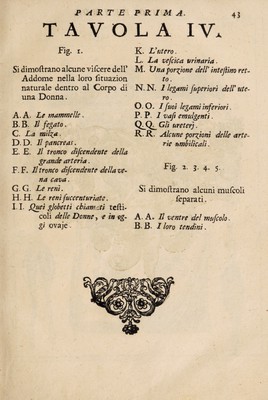 PARTE PRIMA. 43
TAVOLA IV.
Fig. 1.
Si dimoſtrano alcune viſcere dell'
Addome nella loro ſituazion
naturale dentro al Corpo di
una Donna.
A. A. Le mammelle.
B. B. Il fegato.
C. La milza.
D. D. Il pancreas.
E. E. Il tronco diſcendente della
grande arteria.
F. F. Il tronco diſcendente della ve-
na cava.
G. G. Le reni.
H. H. Le reni ſuccenturiate.
I. I. Quei globetti chiamati teſti-
coli delle Donne, e in og-
gi ovaje.
K. L'utero.
L. La veſcica urinaria.
M. Una porzione dell' inteſtino ret-
to.
N. N. I legami ſuperiori dell' ute-
ro.
O. O. I ſuoi legami inferiori.
P. P. I vaſi emulgenti.
Q. Q. Gli ureterj.
R. R. Alcune porzioni delle arte-
rie umbilicali.
Fig. 2. 3. 4. 5.
Si dimoſtrano alcuni muſcoli
ſeparati.
A. A. Il ventre del muſcolo.
B. B. I loro tendini.